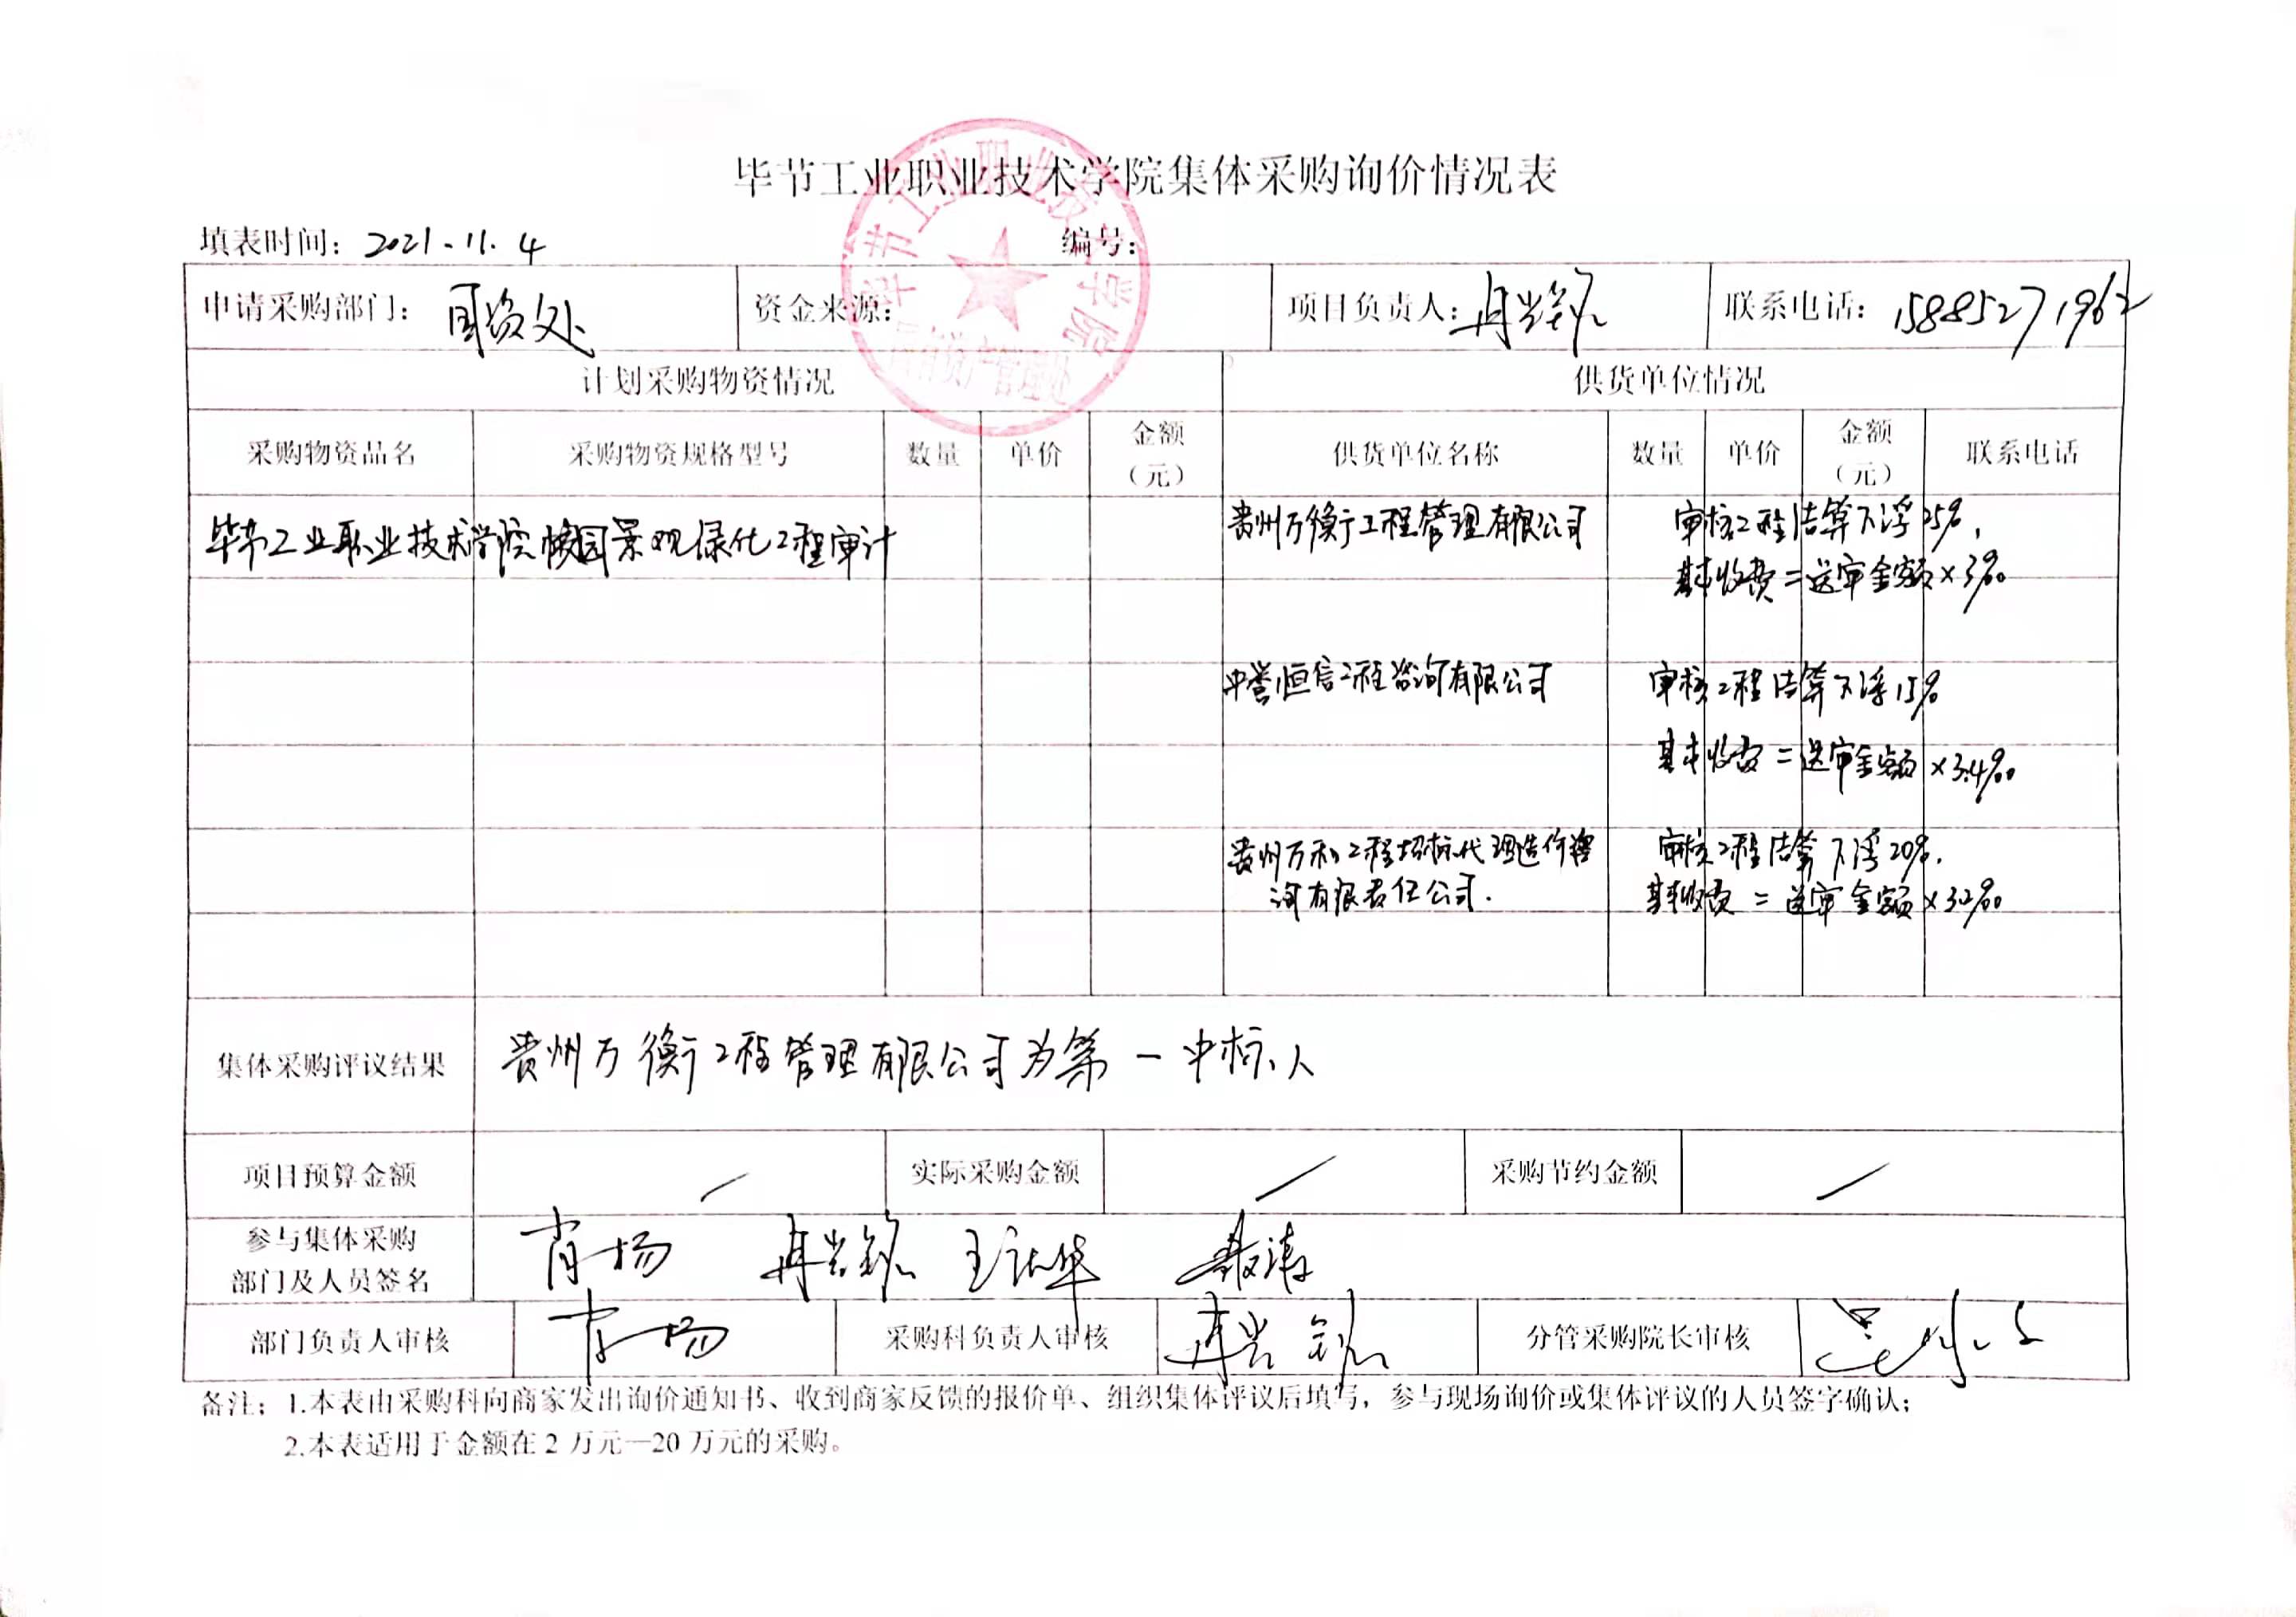 毕节工业职业技术学院集体采购询价情况表
填表时间：2021.11.4 编号：
申请采购部门：国资处 资金来源： 项目负责人：冉 联系电话：15885271962
计划采购物资情况 供货单位情况
采购物资品名 采购物资规格型号 数量 单价 金额（元） 供货单位名称 数量 单价 金额（元） 联系电话
毕节工业职业技术学院校园景观绿化工程审计 贵州万衡工程管理有限公司 审核工程结算下浮25%，
基本收费=送审金额×3‰
中誉恒信工程咨询有限公司 审核工程结算下浮15%
基本收费=送审金额×3.4‰
贵州万和工程招标代理造价咨 审核工程结算下浮20%，
询有限责任公司. 基本收费=送审金额×3.2‰
集体采购评议结果 贵州万衡工程管理有限公司为第一中标人
项目预算金额 / 实际采购金额 / 采购节约金额 /
参与集体采购
部门及人员签名 肖扬 冉 王 华 涛
部门负责人审核 肖扬 采购科负责人审核 冉 分管采购院长审核
备注：1.本表由采购科向商家发出询价通知书、收到商家反馈的报价单、组织集体评议后填写，参与现场询价或集体评议的人员签字确认；
2.本表适用于金额在2万元—20万元的采购。
毕节工业职业技术学院
国有资产管理处